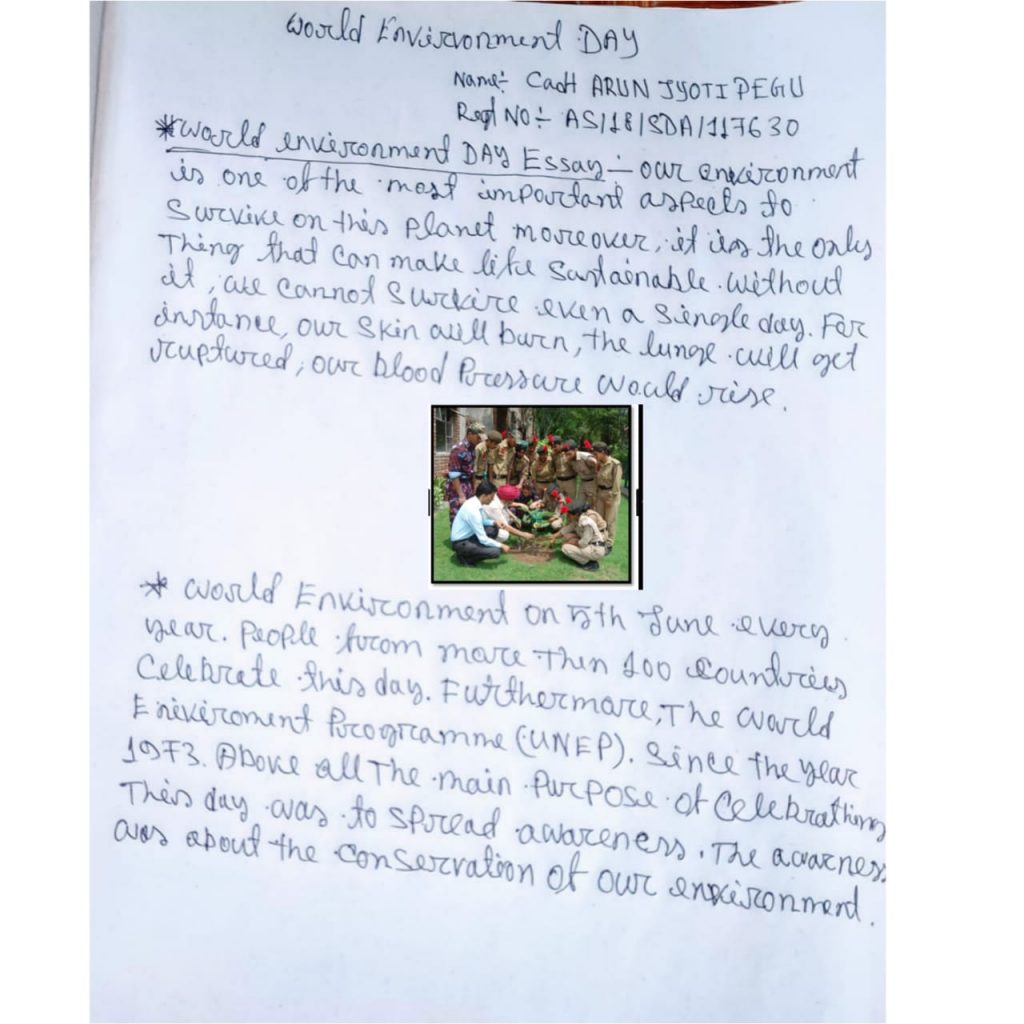 World Envirvonment DAY
Name:- Cadt ARUN JYOTI PEGU
Regt NO:- AS/18/SDA/117630
*World environment DAY Essay - our environment
is one of the most important aspects to
Survive on this planet moreover, it is the only
Thing that can make life Sustainable. without
it, we cannot Survive even a Single day. For
instance, our skin will burn, the lungs will get
ruptured, our blood Pressure would rise.
* World Environment on 5th June every
year. People from more Then 100 Countries
Celebrate this day. Furthermore, The World
Enivironment Programme (UNEP). Since the year
1973. Above all The main Purpose of Celebrathing
This day was to spread awareness. The awarness
was about the conservation of our environment.